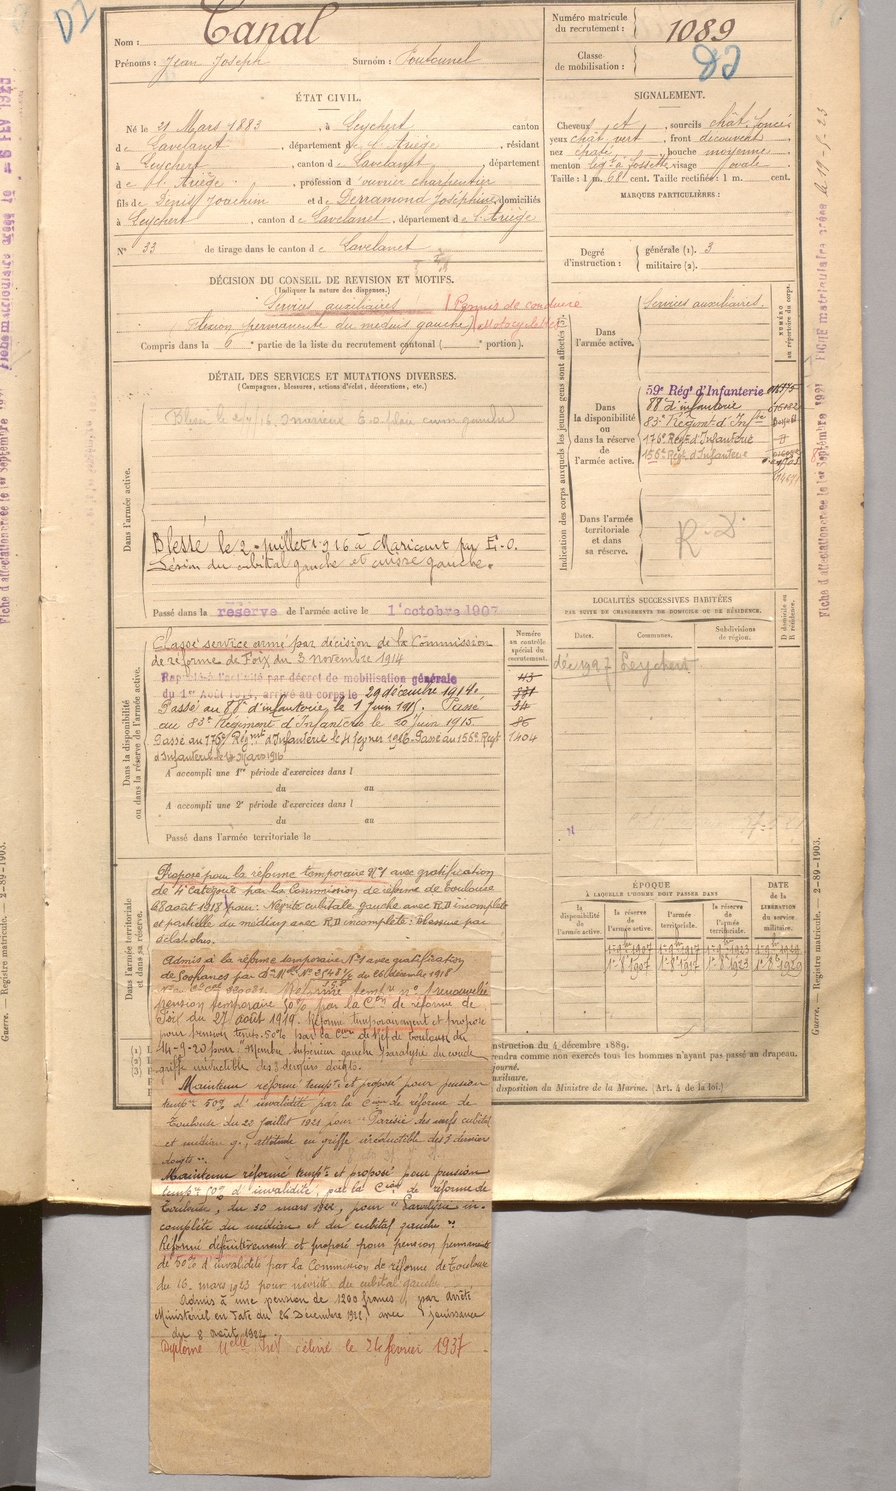 Nom : Canal
Prénoms : Jean Joseph Surnom :
Numéro matricule du recrutement : 1089
Classe de mobilisation :
ÉTAT CIVIL.
Né le 21 Mars 1883, à Leychert canton
de Lavelanet, département de l'Ariège, résidant
à Leychert, canton de Lavelanet, département
de l'Ariège, profession d'ouvrier charpentier
fils de Denis Joachim et de Derramond Joséphine, domiciliés
à Leychert, canton de Lavelanet, département de l'Ariège
N° 33 de tirage dans le canton de Lavelanet
SIGNALEMENT.
Cheveux et, sourcils chât. foncé
yeux chât. vert, front découvert
nez, bouche moyenne
menton à fossette visage ovale
Taille : 1 m. 68 cent. Taille rectifiée : 1 m. cent.
MARQUES PARTICULIÈRES :
Degré d'instruction : générale (1). 3
militaire (2).
DÉCISION DU CONSEIL DE REVISION ET MOTIFS.
(Indiquer la nature des dispenses.)
Services auxiliaires Permis de conduire
Flexion permanente du médius gauche) Motocyclette
Compris dans la 6e partie de la liste du recrutement cantonal ( portion).
DÉTAIL DES SERVICES ET MUTATIONS DIVERSES.
(Campagnes, blessures, actions d'éclat, décorations, etc.)
Dans l'armée active.
Blessé le 2 juillet 1916 à Maricourt par E.O.
Lésion du cubital gauche et cuisse gauche.
Passé dans la réserve de l'armée active le 1er octobre 1907
Indication des corps auxquels les jeunes gens sont affectés
NUMÉRO au répertoire du corps.
Dans l'armée active.
Services auxiliaires.
Dans la disponibilité ou dans la réserve de l'armée active.
59e Régt d'Infanterie
88e d'infanterie
83e Régiment d'Infie
176e Régt d'Infanterie
156e Régt d'Infanterie
Dans l'armée territoriale et dans sa réserve.
R.D.
LOCALITÉS SUCCESSIVES HABITÉES
PAR SUITE DE CHANGEMENTS DE DOMICILE OU DE RÉSIDENCE.
Dates. Communes. Subdivisions de région. D domicile ou R résidence.
déc 1927 Leychert
Dans la disponibilité ou dans la réserve de l'armée active.
Numéro au contrôle spécial du recrutement.
Classé service armé par décision de la Commission
de réforme de Foix du 3 novembre 1914
Rappelé à l'activité par décret de mobilisation générale
du 1er Août 1914, arrivé au corps le 29 décembre 1914.
Passé au 88e d'infanterie le 1 Juin 1915. Passé
au 83e Régiment d'Infanterie le 20 Juin 1915
Passé au 176e Régmt d'Infanterie le 4 février 1916. Passé au 156e Régt
d'Infanterie le Mars 1916
43
34
86
1404
A accompli une 1re période d'exercices dans l
du au
A accompli une 2e période d'exercices dans l
du au
Passé dans l'armée territoriale le
Dans l'armée territoriale et dans sa réserve.
Proposé pour la réforme temporaire N°1 avec gratification
de 4e catégorie par la Commission de réforme de Toulouse
8 août 1918 pour : Névrite cubitale gauche avec R.D incomplète
et partielle du médian avec R.D incomplète : blessure par
éclat obus.
Admis à la réforme temporaire N°1 avec gratification
de 500 francs par Don Melle du 26 décembre 1918
pension temporaire 50% par la Con de réforme de
Foix du 27 août 1919. Réformé temporairement et proposé
pour pension temp. 50% par la Con de réf. de Toulouse du
14-9-20 pour "Membre supérieur gauche paralysie du coude
griffe irréductible des 3 derniers doigts.
Maintenu réformé tempre et proposé pour pension
tempre 50% d'invalidité par la Con de réforme de
Toulouse du 20 Juillet 1921 pour "Parésie des nerfs cubital
et médian g., attitude en griffe irréductible des 3 derniers
doigts".
Maintenu réformé tempre et proposé pour pension
tempre 50% d'invalidité, par la Con de réforme de
Toulouse, du 30 mars 1922, pour "Paralysie in-
complète du médian et du cubital gauche".
Réformé définitivement et proposé pour pension permanente
de 50% d'invalidité par la Commission de réforme de Toulouse
du 16 mars 1923 pour névrite du cubital gauche
Admis à une pension de 1200 francs, par arrêté
Ministériel en date du 26 Décembre, avec jouissance
du 8 août
Diplôme délivré le 24 février 1937
ÉPOQUE
À LAQUELLE L'HOMME DOIT PASSER DANS
la disponibilité de l'armée active. la réserve de l'armée active. l'armée territoriale. la réserve de l'armée territoriale.
DATE de la LIBÉRATION du service militaire.
1er 8bre 1907 1er 8bre 1917 1er 8bre 1923 1er 8bre 1929
nstruction du 4 décembre 1889.
rendra comme non exercés tous les hommes n'ayant pas passé au drapeau.
journé.
uxiliaire.
disposition du Ministre de la Marine. (Art. 4 de la loi.)
Guerre. — Registre matricule. — 2-89-1903.